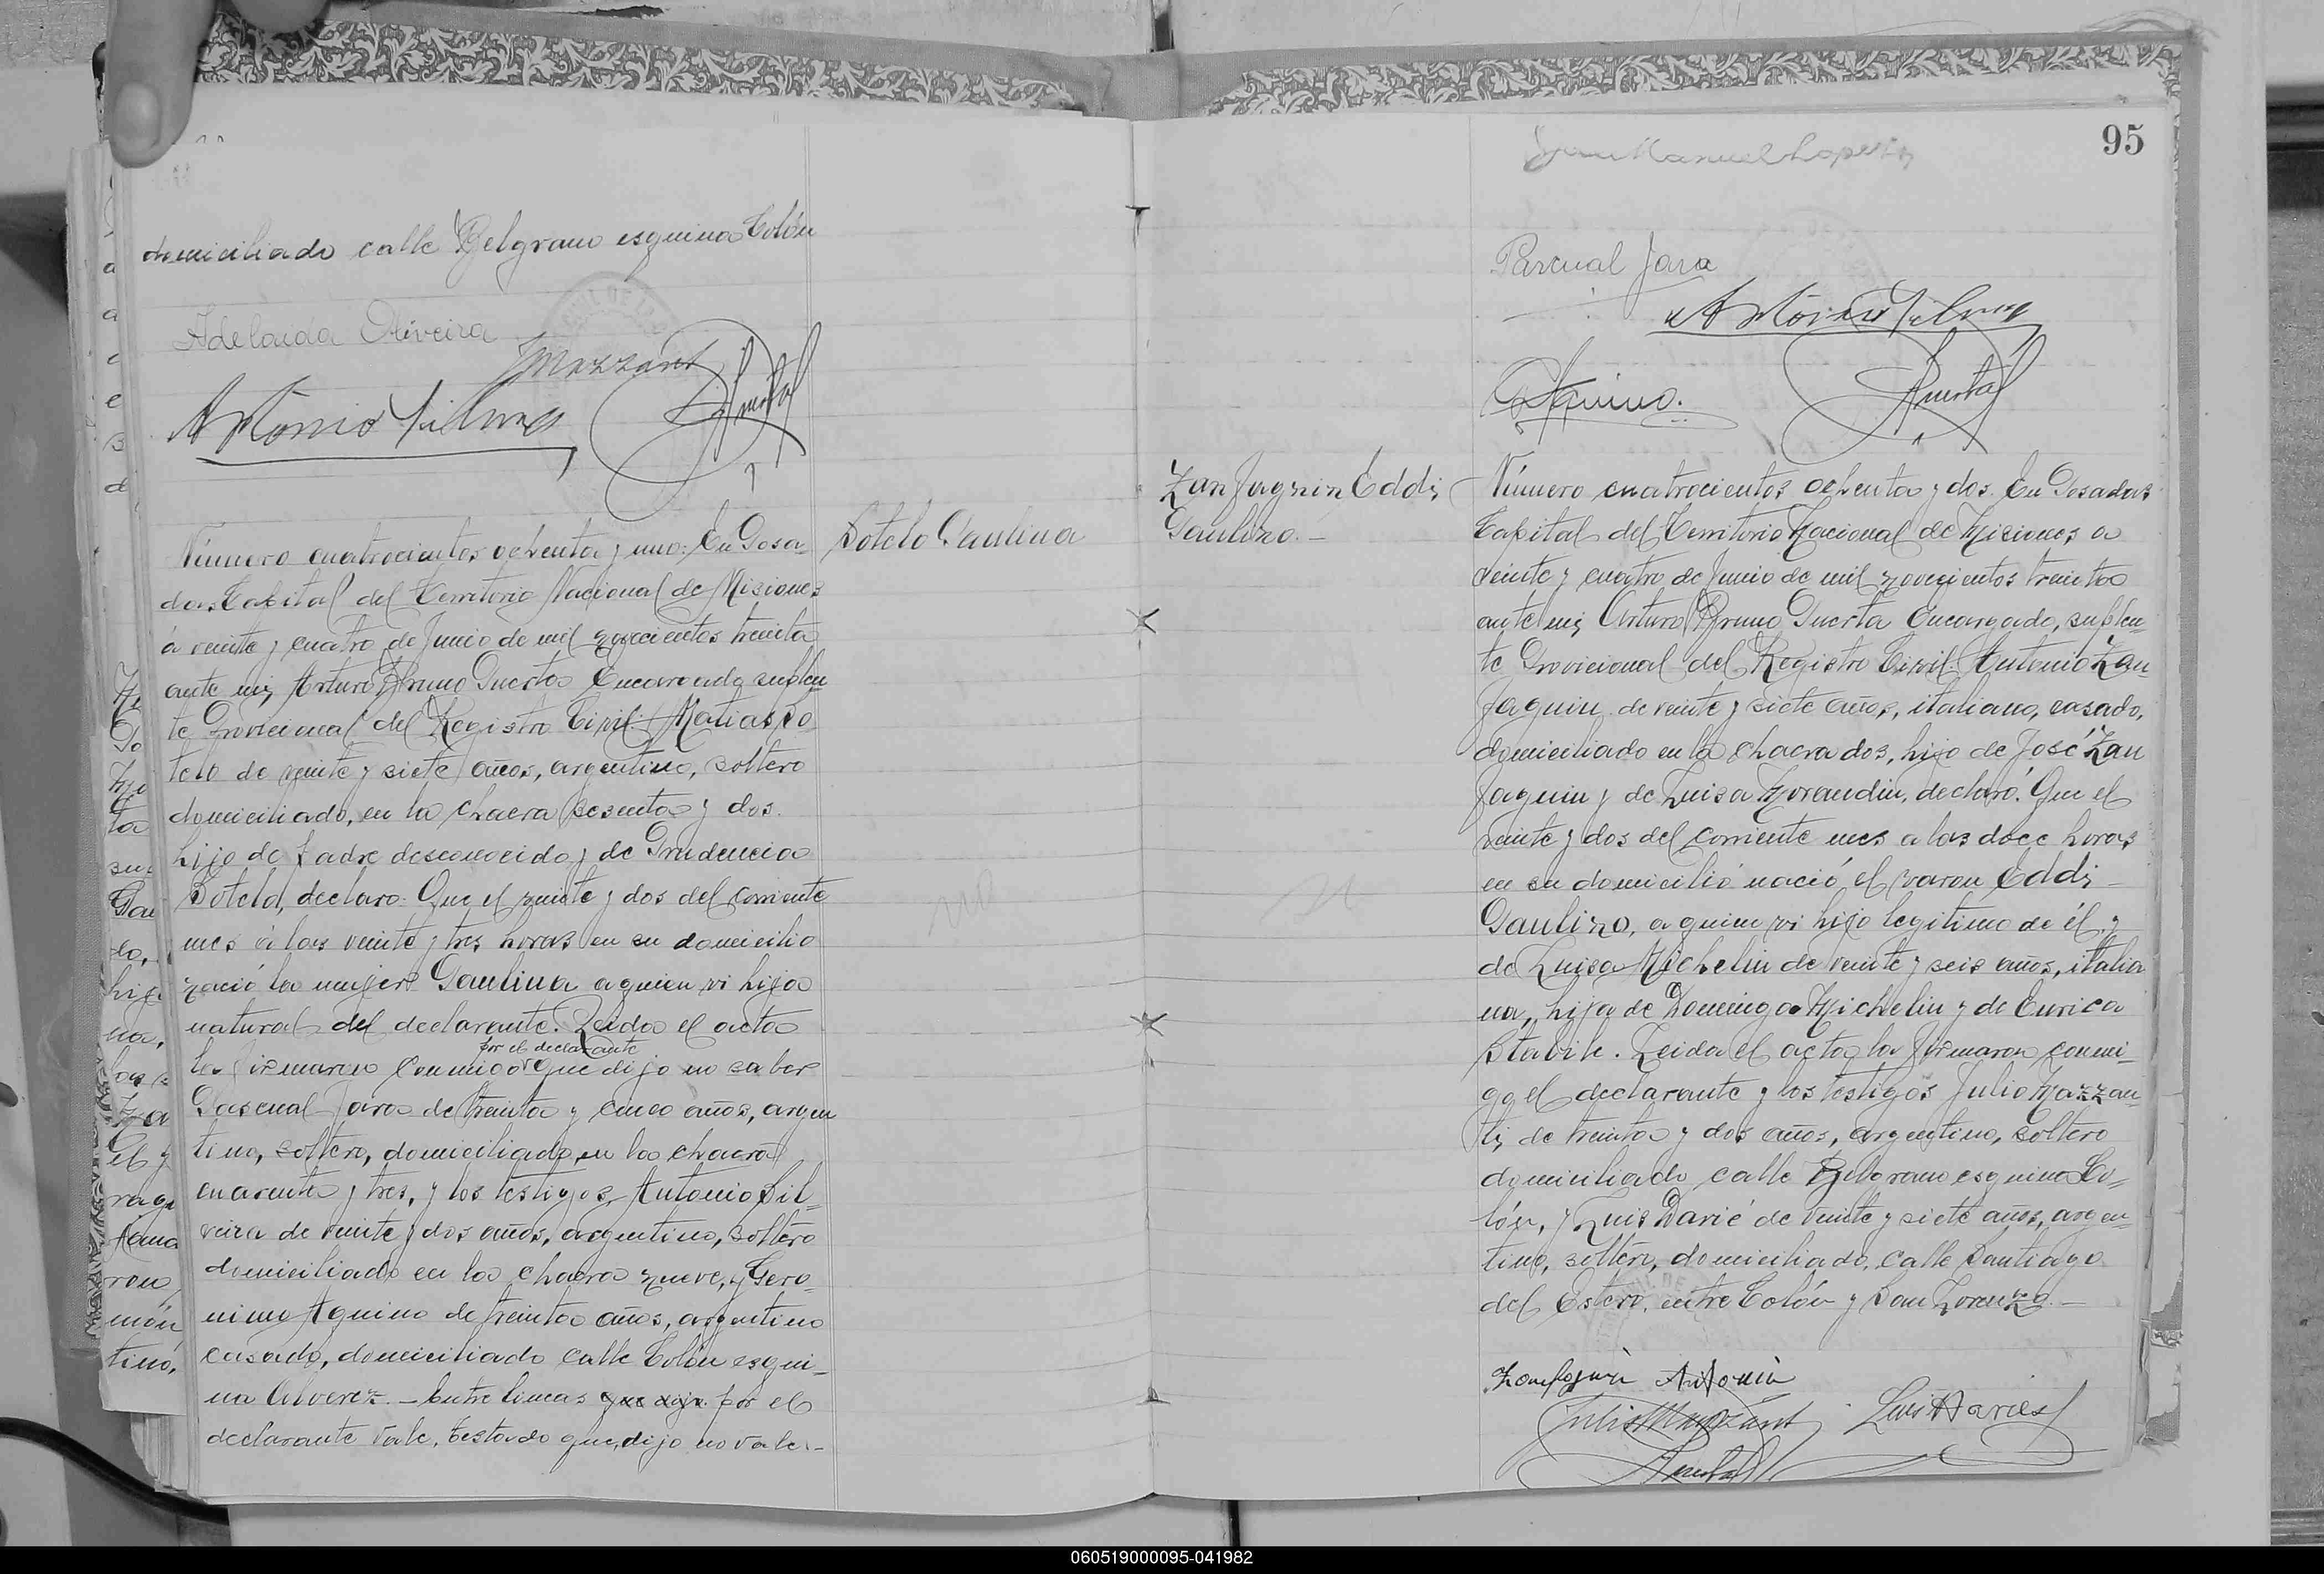 domiciliado calle Belgrano esquina Colón
Adelaida Oliveira
JMazzanti
Antonio Silvera
APuerta
Número cuatrocientos ochenta y uno: En Posa-
das Capital del Territorio Nacional de Misiones
á veinte y cuatro de Junio de mil novecientos treinta
ante mi, Arturo Bruno Puerta Encargado suplen
te Provicional del Registro Civil. Matias So
telo de veinte y siete años, argentino, soltero
domiciliado, en la chacra sesenta y dos.
hijo de padre desconocido y de Prudencia
Sotelo, declaro: Que el veinte y dos del corriente
mes á las veinte y tres horas en su domicilio
nació la mujer Paulina a quien vi hija
natural del declarante. Leida el acta
por el declarante
la firmaron conmigo que dijo no saber
Pascual Jara de treinta y cinco años, argen
tino, soltero, domiciliado, en la chacra
cuarenta y tres, y los testigos Antonio Sil-
veira de veinte y dos años, argentino, soltero
domiciliado en la chacra nueve, y Gero-
nimo Aquino de treinta años, argentino
casado, domiciliado calle Colón esqui-
na Alverez. - Entre lineas que dijo por el
declarante vale. Testado que, dijo no vale. -
Sotelo Paulina
95
Juan Manuel Lopez
Pascual Jara
Antonio Silvera
GAquino.
APuerta
Zan Jaquin Eddi
Paulino. -
Número cuatrocientos ochenta y dos. En Posadas
Capital del Territorio Nacional de Misiones a
veinte y cuatro de Junio de mil novecientos treinta
ante mi, Arturo Bruno Puerta Encargado, suplen-
te Provicional del Registro Civil. Antonio Zan
Jaquin de veinte y siete años, italiano, casado,
domiciliado en la chacra dos, hijo de José Zan
Jaquin y de Luisa Morandin, declaró: Que el
veinte y dos del corriente mes a las doce horas
en su domicilio nació el varon Eddi
Paulino, a quien vi hijo legitimo de él y
de Luisa Michelin de veinte y seis años, italia
na, hija de Domingo Michelin y de Enrica
Stabile. Leida el acta la firmaron conmi-
go el declarante y los testigos Julio Mazzan
ti, de treinta y dos años, argentino, soltero
domiciliado calle Belgrano esquina Co-
lón, y Luis Darié de veinte y siete años, argen-
tino, soltero, domiciliado, calle Santiago
del Estero, entre Colón y San Lorenzo. -
Zanjaquin Antonio
Julio Mazzanti
Luis Daries
APuerta
060519000095-041982